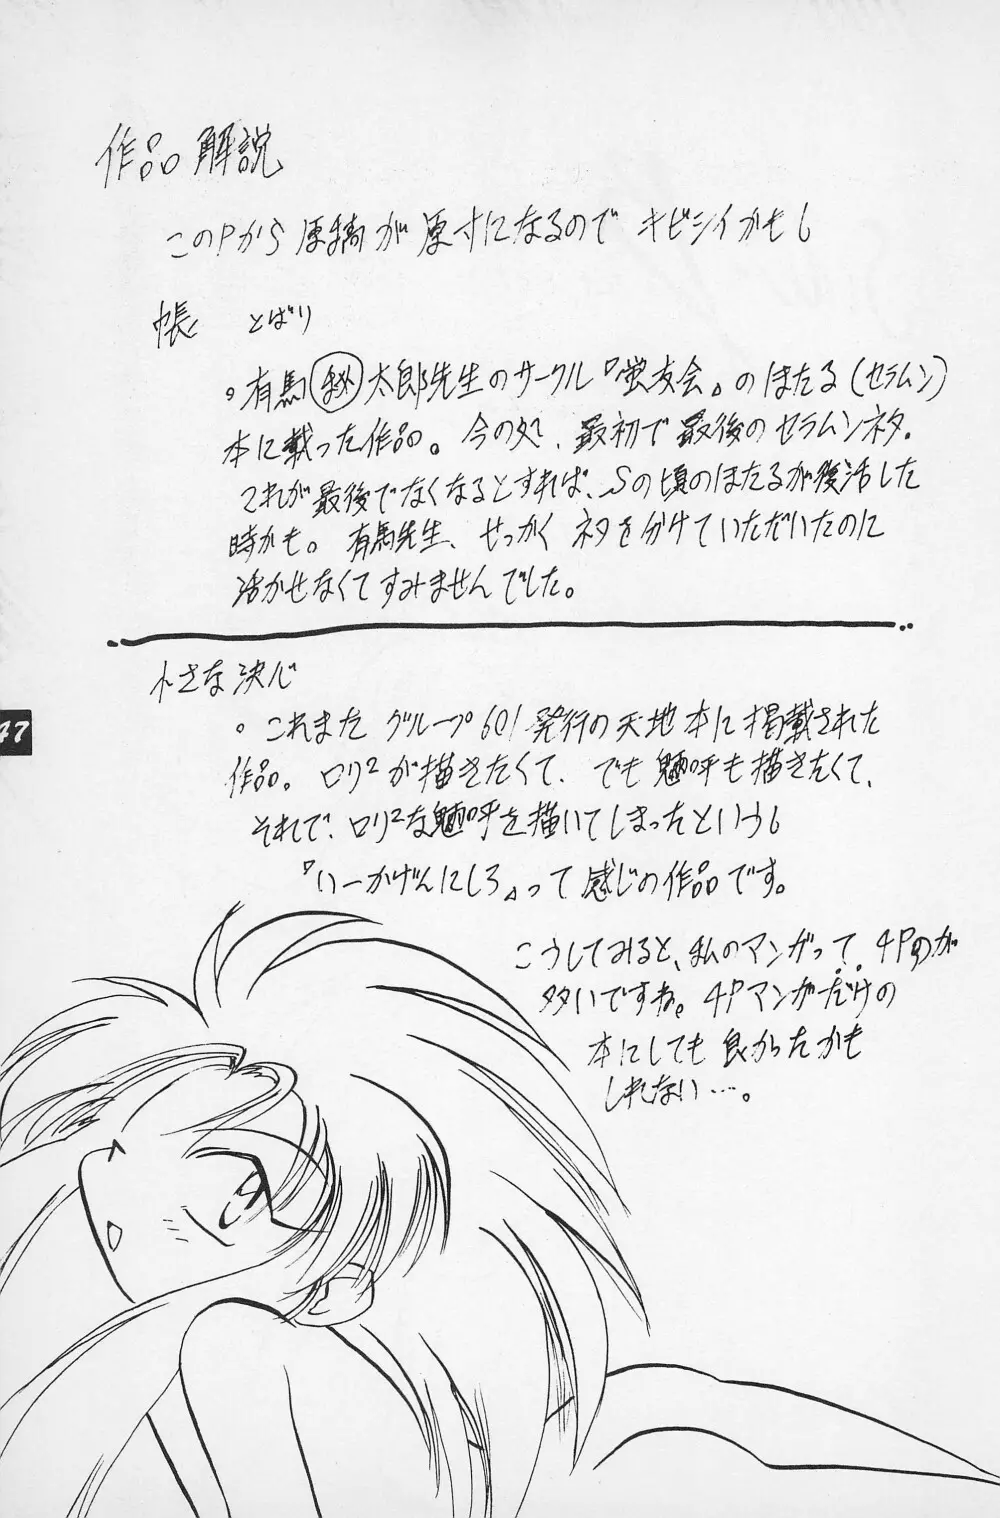 作品解説
このPから原稿が原寸になるのでキビシイかもし
帳 とばり
。有馬㊙太郎先生のサークル『蛍友会』のほたる(セラムン)
本に載った作品。今の処、最初で最後のセラムンネタ.
これが最後でなくなるとすれば、Sの頃のほたるが復活した
時かも。有馬先生、せっかくネタを分けていただいたのに
活かせなくてすみませんでした。
小さな決心
。これまたグループ601発行の天地本に掲載された
作品。ロリ²が描きたくて、でも魎呼も描きたくて、
それで、ロリ²な魎呼を描いてしまったというし
『いーかげんにしろ』って感じの作品です。
こうしてみると、私のマンガって、4Pのが
多いですね。4Pマンガだけの
47
本にしても良かったかも
しれない…。